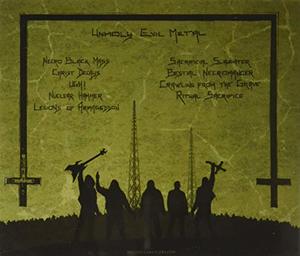 Unholy Evil Metal
Necro Black Mass
Christ Decays
UGH!
Nuclear Hammer
Legions of Armageddon
Sacrificial Slaughter
Bestial Necromancer
Crawling from the Grave
Ritual Sacrifice